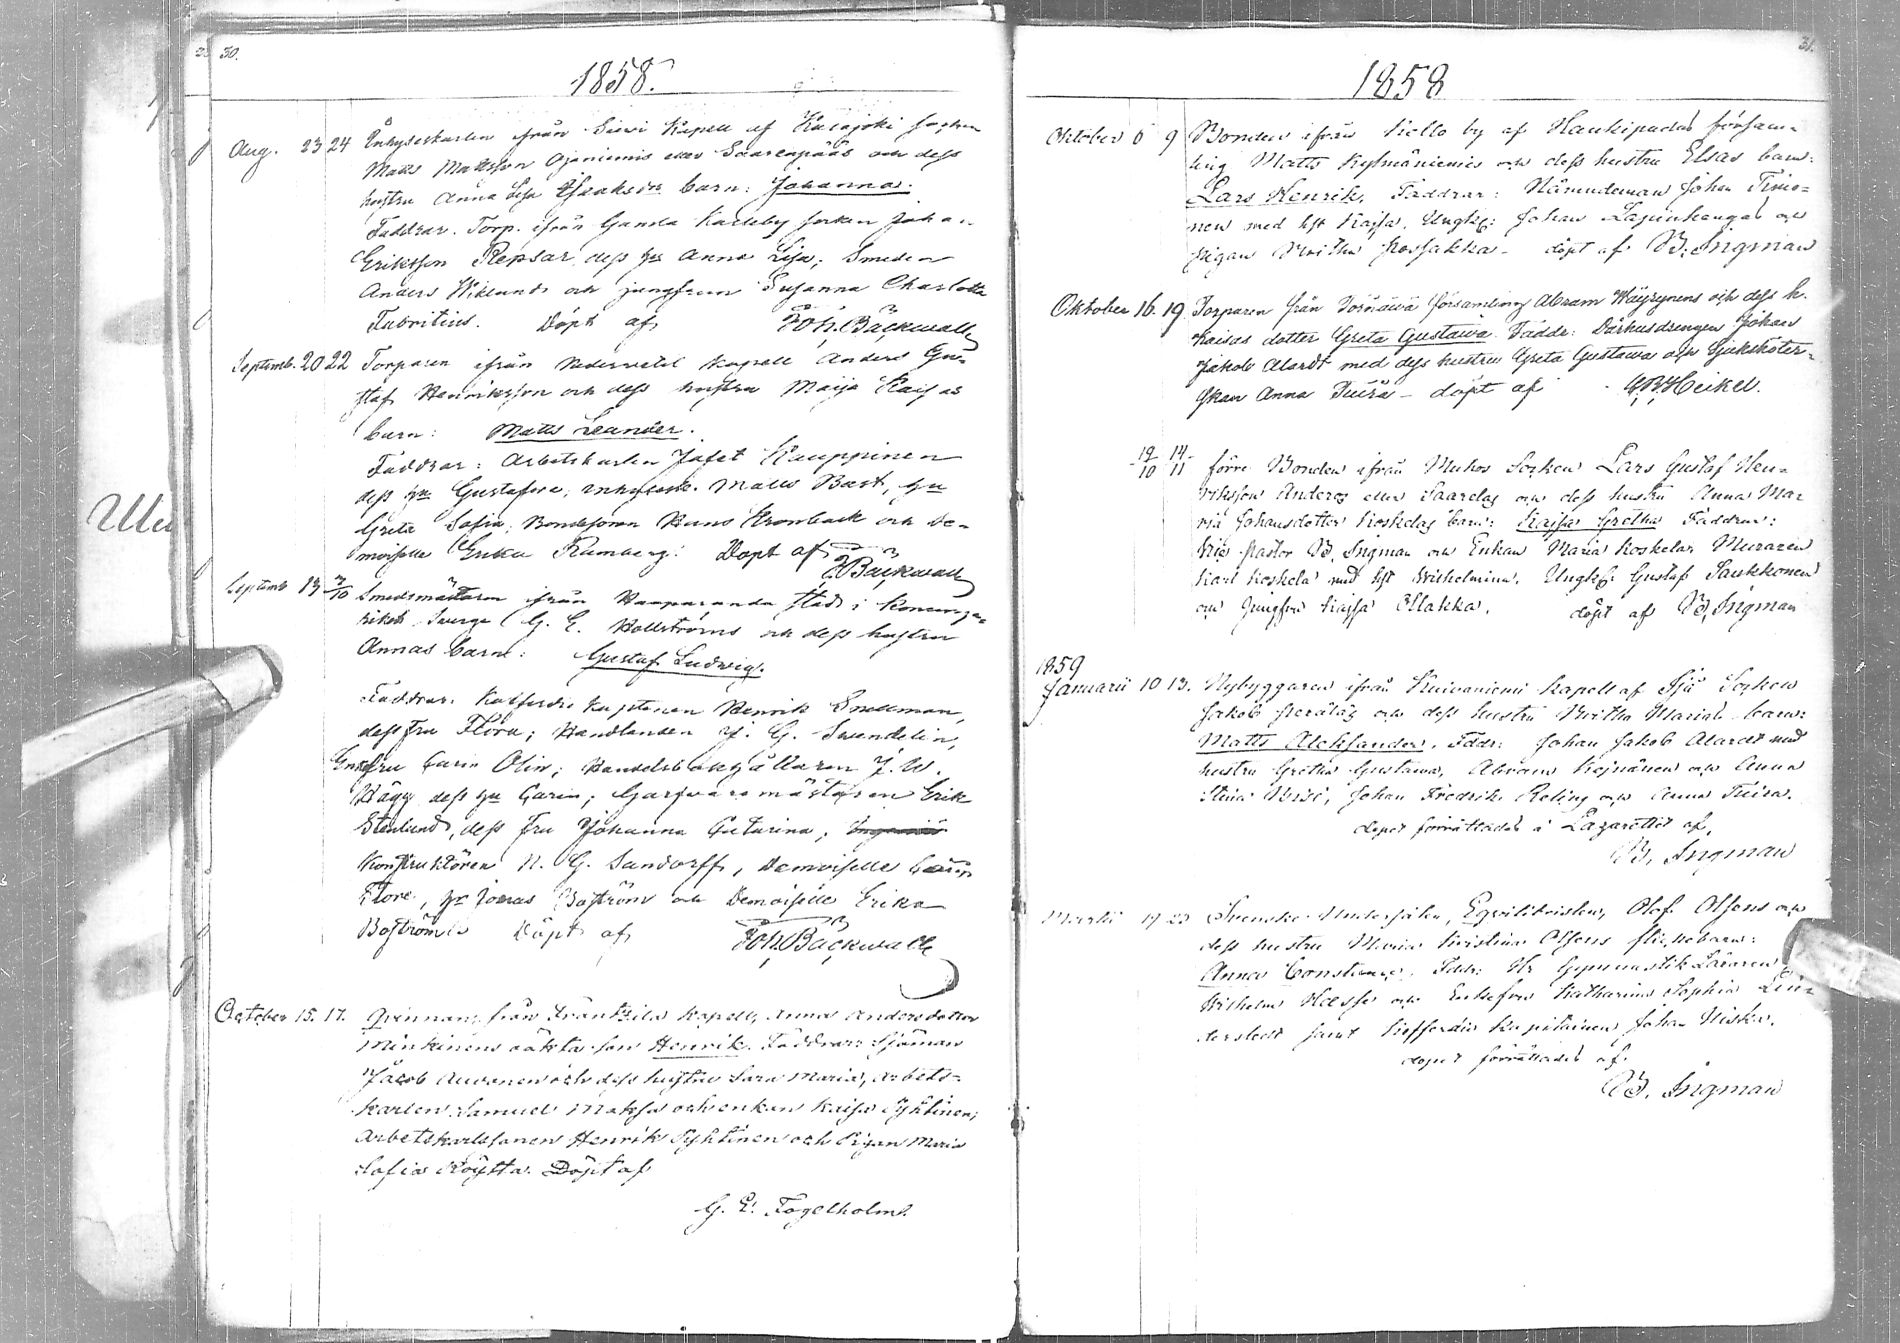 30.
1858.
Aug. 23 24 Inhyseskarlen ifrån Siewi Kapell af Kalajoki socken
Matts Mattsson Ojaniemis eller Saarenpääs och dess
hustru Anna Lisa Isaksdr barn: Johanna.
Faddrar. Torp. ifrån Gamla Karleby socken Johan
Eriksson Repsar, dess hu Anna Lisa; Smeden
Anders Wiklund och jungfrun Susanna Charlotta
Fabritius. Döpt af Joh. Bäckwall
Septemb. 20 22 Torparen ifrån Nedervetil Kapell Anders Gu-
staf Henriksson och dess hustru Maija Kaisas
barn: Matts Leander.
Faddrar: Arbetskarlen Jafet Kauppinen
dess hu Gustafva, inhysesk. Matts Bast, hu
Greta Sofia; Bondesonen Hans Kronback och De-
moiselle Erika Ramberg: Döpt af J Bäckwall
Septemb 13 3/10 Smedsmästaren ifrån Haaparanda stad i Konunga-
riket Swerge G. E. Hollströms och dess hustru
Annas barn: Gustaf Ludwig.
Faddrar. Kofferdi Kaptenen Henrik Snellman,
dess fru Flora; Handlanden J. G. Swendelin,
Enkefru Carin Olin; Handelsbokhållaren J. W.
Hägg dess hu Carin; Garfwaremästaren Erik
Stenlund, dess fru Johanna Catarina;
Konstruktören N. G. Sandorff, Demoiselle
Flore, hr Jonas Boström och Demoiselle Erika
Boström Döpt af Joh. Bäckwall
October 15. 17. Qvinnan, från Frantsila Kapell, Anna Andersdotter
Minkinens oäkta son Henrik. Faddrar: Sjöman
Jacob Auvonen och dess hustru Sara Maria, Arbets-
karlen Samuel Matsa och enkan Kaisa Tyhtinen;
Arbetskarlssonen Henrik Tyhtinen och Pigan Maria
Sofia Köyttä. Döpt af
G. E. Fogelholm.
31.
1858
Oktober 6 9 Bonden ifrån Kello by af Haukipudas försam-
ling Matts Kylmäniemis och dess hustru Elsas barn:
Lars Henrik. Faddrar: Nämndeman Johan Timo-
nen med hst Kaisa. Ungk: Johan Lapinkangas och
pigan Britha Kosjakka - döpt af B. Ingman
Oktober 16. 19. Torparen från Torneå församling Abram Häyrynens och dess h.
Kaisas dotter Greta Gustawa. Faddr: Dårhusdrengen Johan
Jakob Alardt med dess hustru Greta Gustawa och Sjukskötер-
skan Anna Tuira - döpt af G. B. Heikel.
19/10 14/11 förre Bonden ifrån Muhos Socken Lars Gustaf Hen-
riksson Anderos eller Saarelas och dess hustru Anna Mar
ria Johansdotter Koskelas barn: Kajsa Gretha Faddrar:
Vice pastor B. Ingman och Enkan Maria Koskela, Muraren
Karl Koskela med hst Wilhelmina, Ungk: Gustaf Saukkonen
och Jungfru Kajsa Ollakka. döpt af B. Ingman
1859
Januarii 10 13. Nybyggaren ifrån Kuivaniemi kapell af Ijå Socken
Jakob Peräläs och dess hustru Britha Marias barn:
Matts Aleksander. Faddr: Johan Jakob Alardt med
hustru Gretha Gustawa, Abram Keinänen och Anna
Stina Wirsi, Johan Fredrik Reling och Anna Tuira.
dopet förrättadt å Lazarettet af,
B. Ingman
Martii 19 23 Svenske Undersåten, Eqvilibristen, Olof Olssons och
dess hustru Maria Kristina Olssons flickebarn:
Anna Constance. Faddr: Hr Gymnastik Läraren
Wilhelm Hasse och Enkefru Katharina Sophia Lin-
derstedt samt Kofferdi Kapitainen Johan Niska.
dopet förrättadt af.
B. Ingman